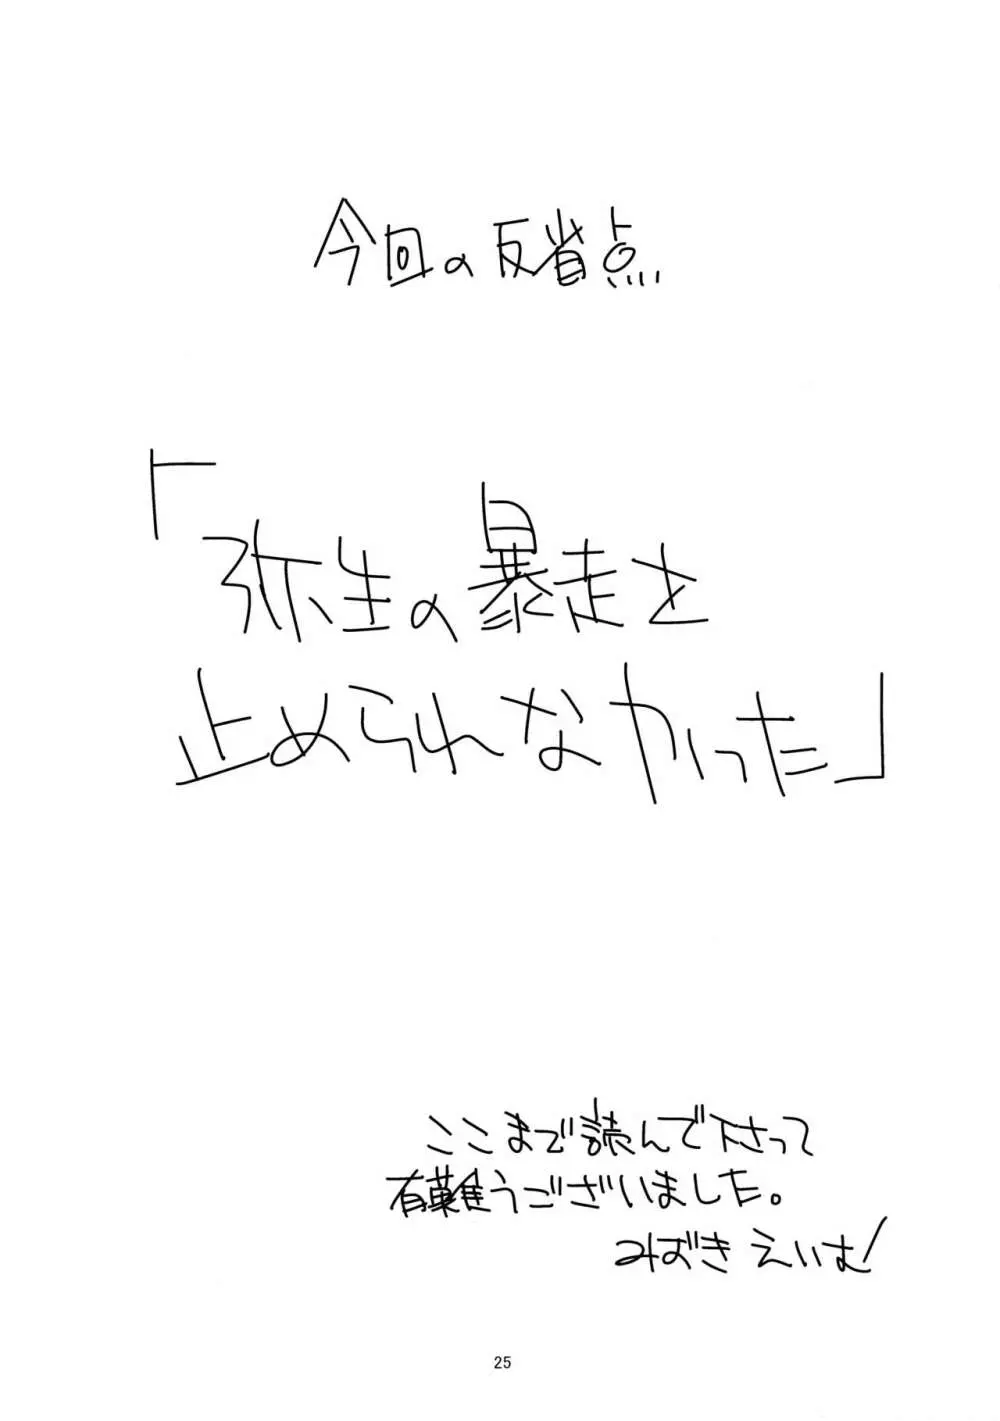 今回の反省点
「弥生の暴走を
止められなかった」
ここまで読んで下さって
有難うございました。
みずき えいむ
25